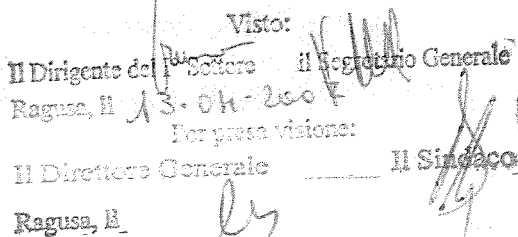 Visto:
Il Dirigente del I° Settore il Segretario Generale
Ragusa, li 13-04-2007
Per presa visione:
Il Direttore Generale Il Sindaco
Ragusa, li